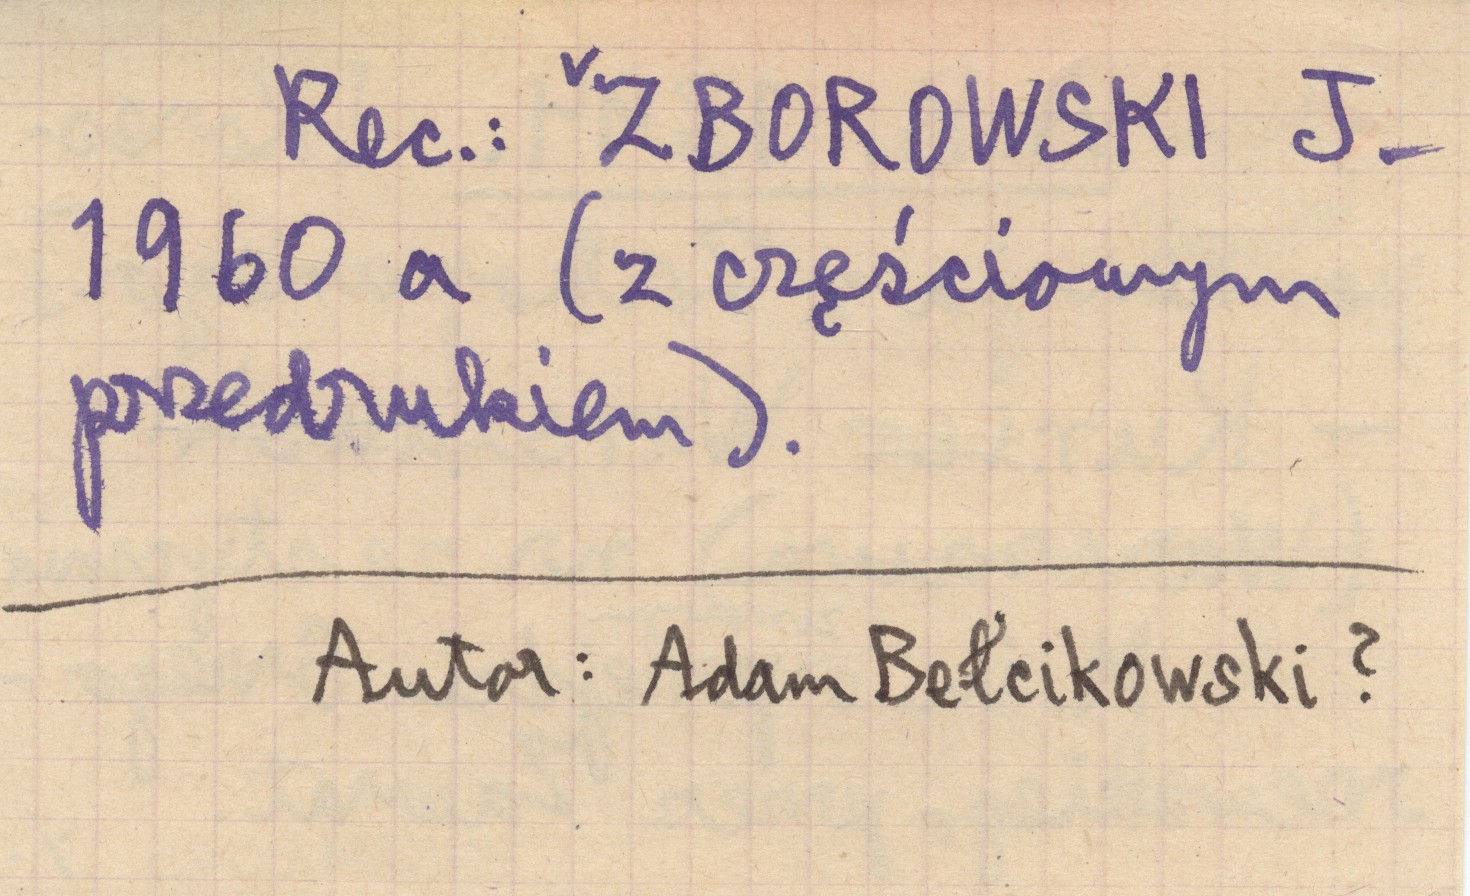 Rec.: ZBOROWSKI J.
1960 a (z częściowym
przedrukiem).
Autor: Adam Bełcikowski?